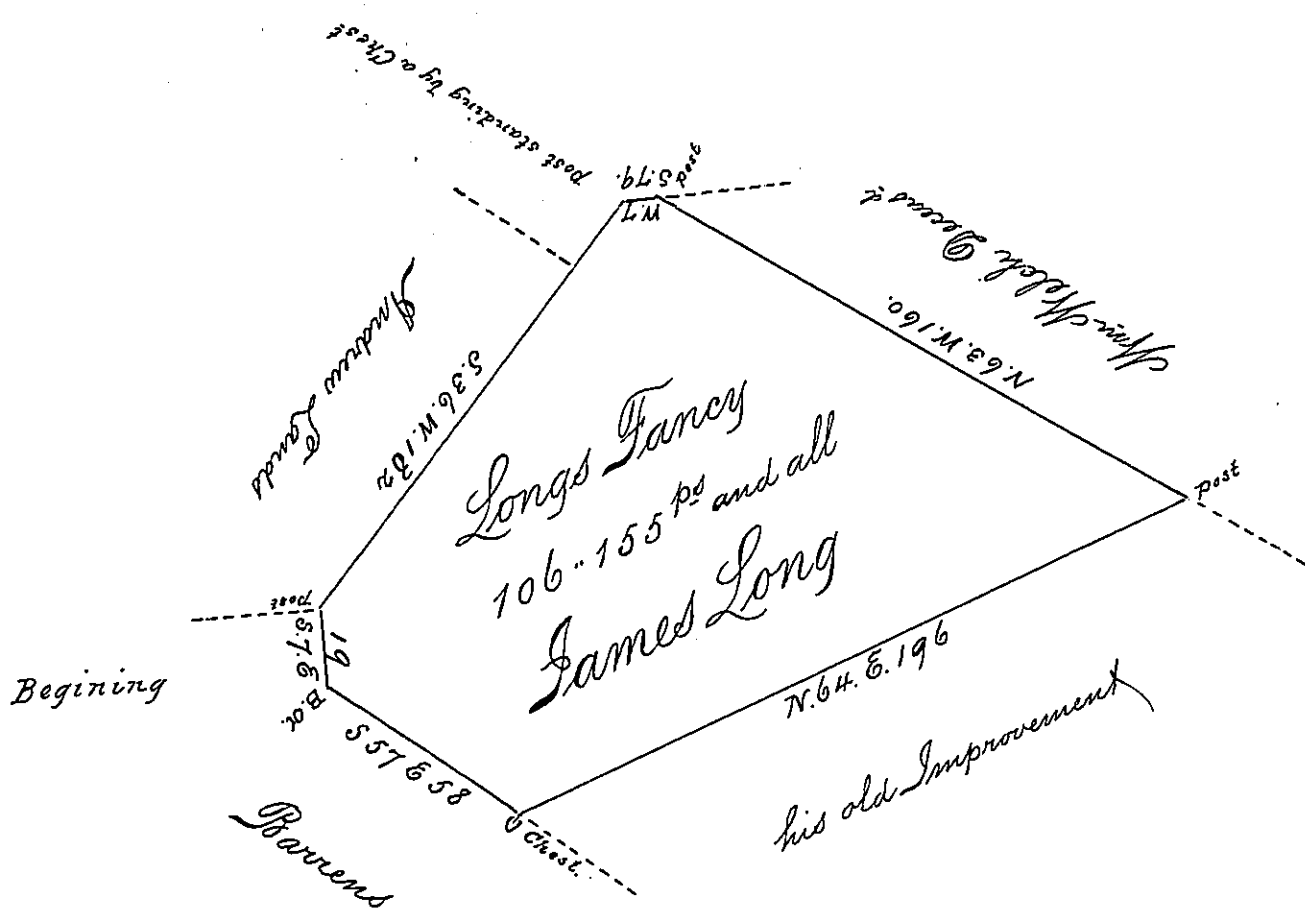 post standing by a Chest
post
S.79.
W.7
Wm Welch Deceast
N.63.W.160.
Andrew Lands
S.36.W.132
Longs Fancy
106.. 155 ps and all
James Long
post
post
19
S.7.E
Begining
B.O.
S 57 E 58
N.64.E.196
Chest.
his old Improvement
Barrens